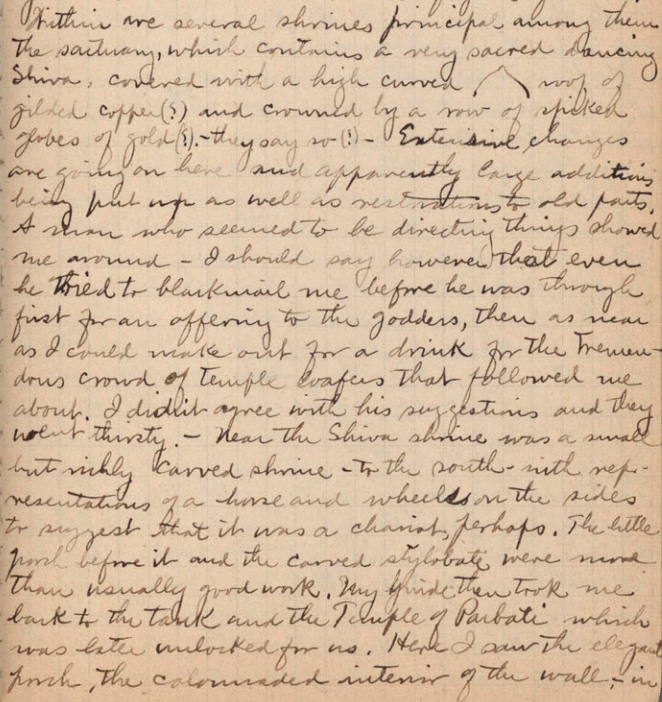 Within are several shrines principal among them
the sactuary, which contains a very sacred dancing
Shiva, covered with a high curved roof of
gilded copper(?) and crowned by a row of spiked
globes of gold(?).-they say so(!)- Extensive changes
are going on here and apparently large additions
being put up as well as restorations to old parts.
A man who seemed to be directing things showed
me around - I should say however that even
he tried to blackmail me before he was through
first for an offering to the goddess, then as near
as I could make out for a drink for the tremen-
dous crowd of temple loafers that followed me
about. I didn't agree with his suggestions and they
went thirsty. - Near the Shiva shrine was a small
but richly carved shrine - to the south - with rep-
resentations of a horse and wheels on the sides
to suggest that it was a chariot, perhaps. The little
porch before it and the carved stylobate were more
than usually good work. My guide then took me
back to the tank and the Temple of Parbati which
was later unlocked for us. Here I saw the elegant
porch, the colonnaded interior of the wall, - in